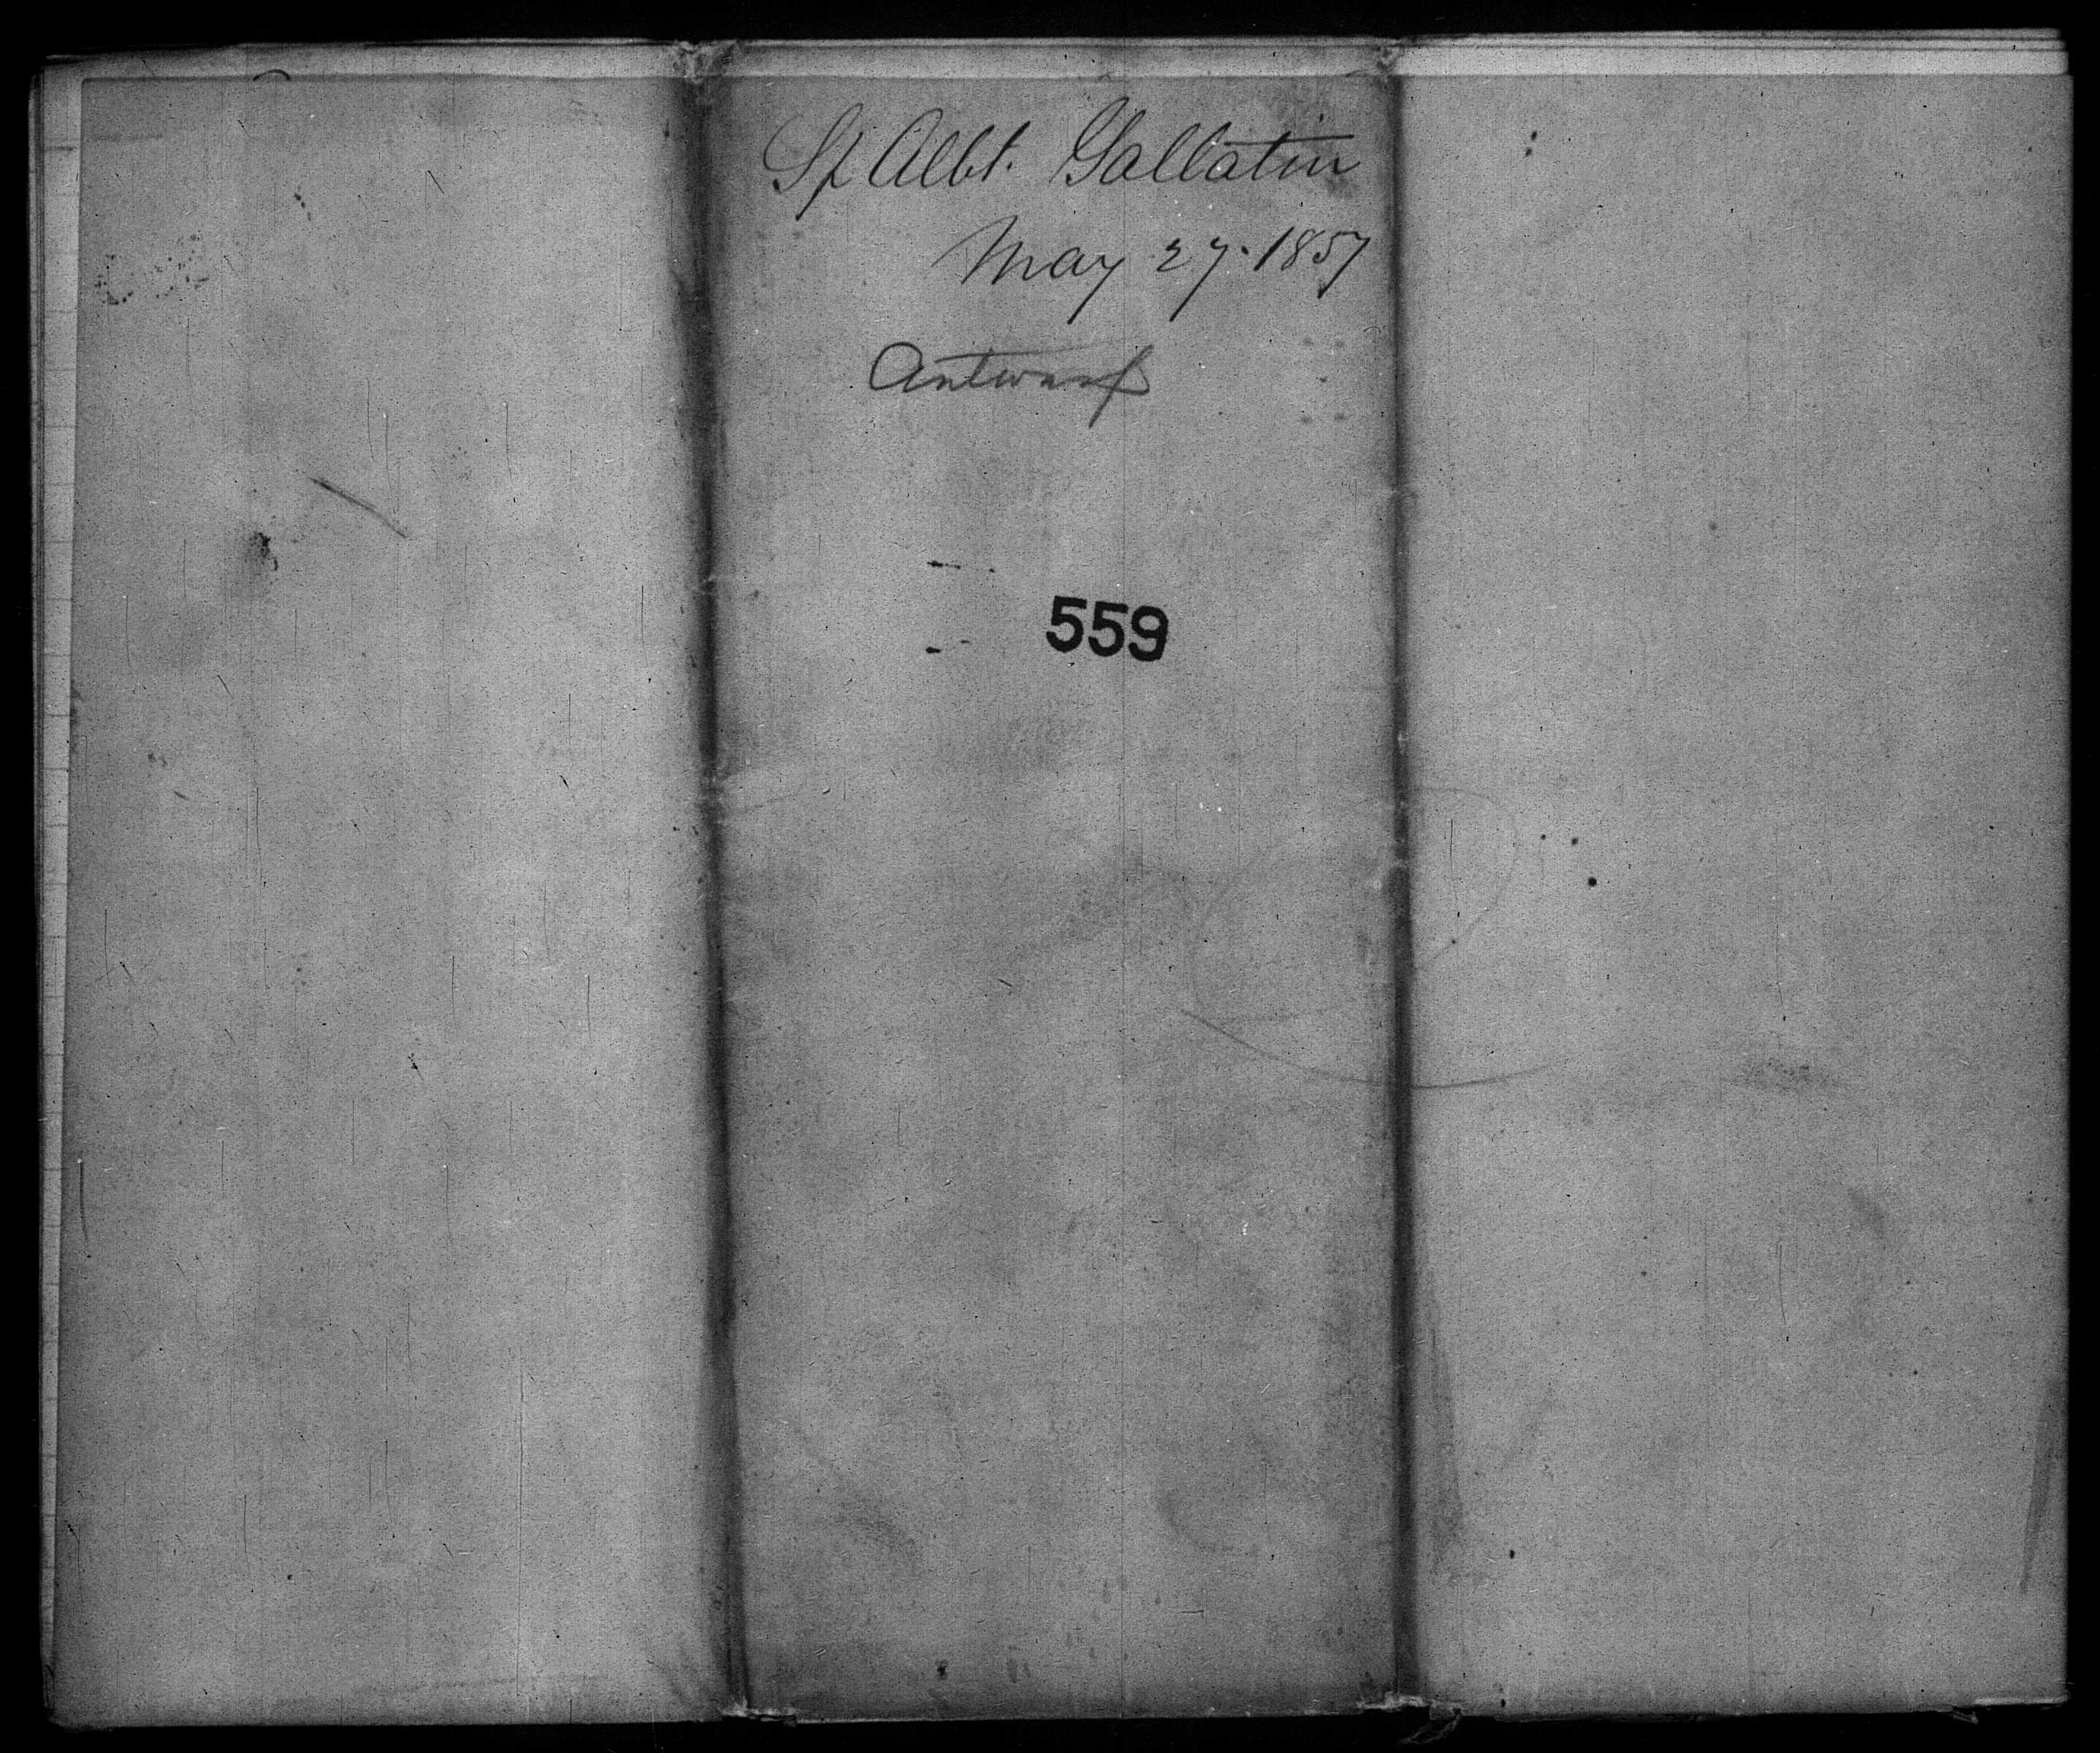 Sp Albt. Gallatin
May 27. 1857
Antwerp
559